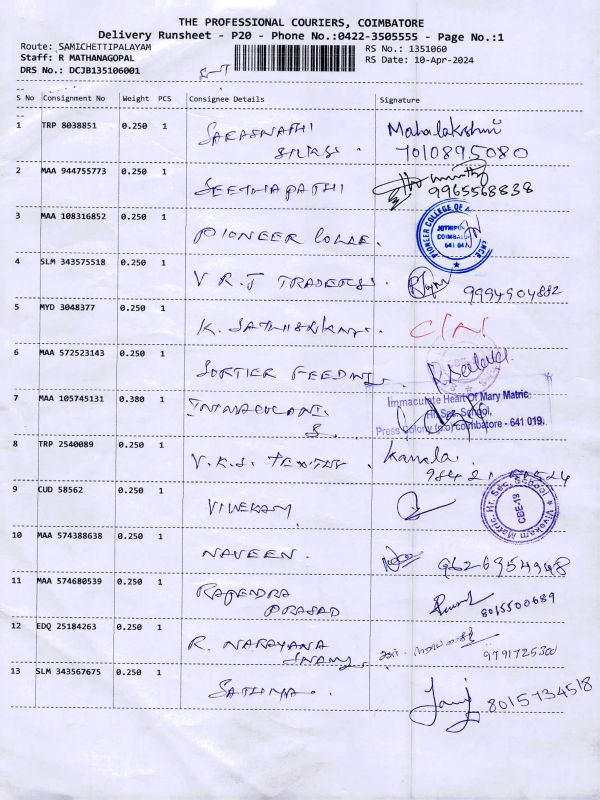 THE PROFESSIONAL COURIERS, COIMBATORE
Delivery Runsheet - P20 - Phone No.:0422-3505555 - Page No.:1
Route: SAMICHETTIPALAYAM RS No.: 1351060
Staff: R MATHANAGOPAL RS Date: 10-Apr-2024
DRS No.: DCJB135106001
S No Consignment No Weight PCS Consignee Details Signature
1 TRP 8038851 0.250 1 Mahalakshmi
7010895080
2 MAA 944755773 0.250 1 SEETHAPATHI
9965568838
3 MAA 108316852 0.250 1 PIONEER
PIONEER COLLEGE OF
641 047
4 SLM 343575518 0.250 1 V R.J TRADERS. 9994904882
5 MYD 3048377 0.250 1 K.
6 MAA 572523143 0.250 1 FEEDING
7 MAA 105745131 0.380 1
Immaculate Heart Of Mary Matric.
Hr. Sec. School,
Press Colony (po) coimbatore - 641 019.
8 TRP 2540089 0.250 1 V.K.S. Kamala
9 CUD 58562 0.250 1 VIVEKAM
Vivekam Matric. Hr. Sec. School
CBE-19
10 MAA 574388638 0.250 1 NAVEEN. 9626954948
11 MAA 574680539 0.250 1 RAJENDRA
PRASAD 8015500689
12 EDQ 25184263 0.250 1 R. NARAYANA
SWAMY. 9791725300
13 SLM 343567675 0.250 1 SATHYA. 8015734518